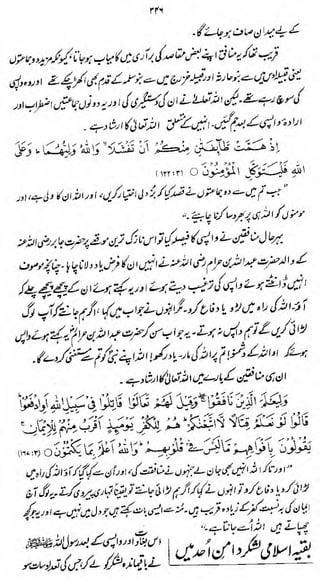 ۳۴۶
کے لیے میدان صاف ہو جائے گا۔
قریب تھا کہ یہ منافق اپنے بعض مقاصد کی برآری میں کامیاب ہو جاتا، کیونکہ مزید دو جماعتوں
یعنی قبیلہ اوس میں سے بنو حارثہ اور قبیلہ خزرج میں سے بنو سلمہ کے قدم بھی اکھڑ چکے تھے اور وہ واپسی
کی سوچ رہے تھے، لیکن اللہ تعالیٰ نے ان کی دستگیری کی اور یہ دونوں جماعتیں اضطراب اور
ارادۂ واپسی کے بعد جم گئیں۔ انہیں کے متعلق اللہ تعالیٰ کا ارشاد ہے۔
إِذْ هَمَّتْ طَائِفَتٰنِ مِنْكُمْ أَنْ تَفْشَلَا ۙ وَاللّٰهُ وَلِيُّهُمَا ۗ وَعَلَى
اللّٰهِ فَلْيَتَوَكَّلِ الْمُؤْمِنُوْنَ ○ (۱۲۲:۳)
”جب تم میں سے دو جماعتوں نے قصد کیا کہ بزدلی اختیار کریں، اور اللہ ان کا ولی ہے، اور
مومنوں کو اللہ ہی پر بھروسا کرنا چاہیے۔“
بہر حال منافقین نے واپسی کا فیصلہ کیا تو اس نازک ترین موقعے پر حضرت جابر رضی اللہ عنہ
کے والد حضرت عبداللہ بن حرام رضی اللہ عنہ نے انہیں ان کا فرض یاد دلانا چاہا۔ چنانچہ موصوف
انہیں ڈانٹتے ہوئے واپسی کی ترغیب دیتے ہوئے اور یہ کہتے ہوئے ان کے پیچھے پیچھے چلے کہ
آؤ۔ اللہ کی راہ میں لڑو یا دفاع کرو۔ مگر انہوں نے جواب میں کہا، اگر ہم جانتے کہ آپ لوگ
لڑائی کریں گے تو ہم واپس نہ ہوتے۔ یہ جواب سن کر حضرت عبداللہ بن حرام یہ کہتے ہوئے واپس
ہوئے کہ او اللہ کے دشمنو! تم پر اللہ کی مار۔ یاد رکھو! اللہ اپنے نبی کو تم سے مستغنی کر دے گا۔
ان ہی منافقین کے بارے میں اللہ تعالیٰ کا ارشاد ہے۔
وَلِيَعْلَمَ الَّذِيْنَ نَافَقُوْا ۖ وَقِيْلَ لَهُمْ تَعَالَوْا قَاتِلُوْا فِيْ سَبِيْلِ اللّٰهِ اَوِ ادْفَعُوْا
قَالُوْا لَوْ نَعْلَمُ قِتَالًا لَّا اتَّبَعْنٰكُمْ ۗ هُمْ لِلْكُفْرِ يَوْمَئِذٍ اَقْرَبُ مِنْهُمْ لِلْاِيْمَانِ ۚ
يَقُوْلُوْنَ بِاَفْوَاهِهِمْ مَّا لَيْسَ فِيْ قُلُوْبِهِمْ ۗ وَاللّٰهُ اَعْلَمُ بِمَا يَكْتُمُوْنَ ○ (۱۶۷:۳)
”اور تاکہ اللہ انہیں بھی جان لے جنہوں نے منافقت کی، اور ان سے کہا گیا کہ آؤ اللہ کی راہ میں
لڑائی کرو یا دفاع کرو تو انہوں نے کہا کہ اگر ہم لڑائی جانتے تو یقیناً تمہاری پیروی کرتے، یہ لوگ آج
ایمان کی بہ نسبت کفر کے زیادہ قریب ہیں۔ منہ سے ایسی بات کہتے ہیں جو دل میں نہیں ہے اور یہ جو کچھ
چھپاتے ہیں اللہ اسے جانتا ہے۔“
بقیہ اسلامی لشکر دامنِ اُحد میں اس بغاوت اور واپسی کے بعد رسول اللہ ﷺ
نے باقیماندہ لشکر کو لے کر جس کی تعداد سات سو